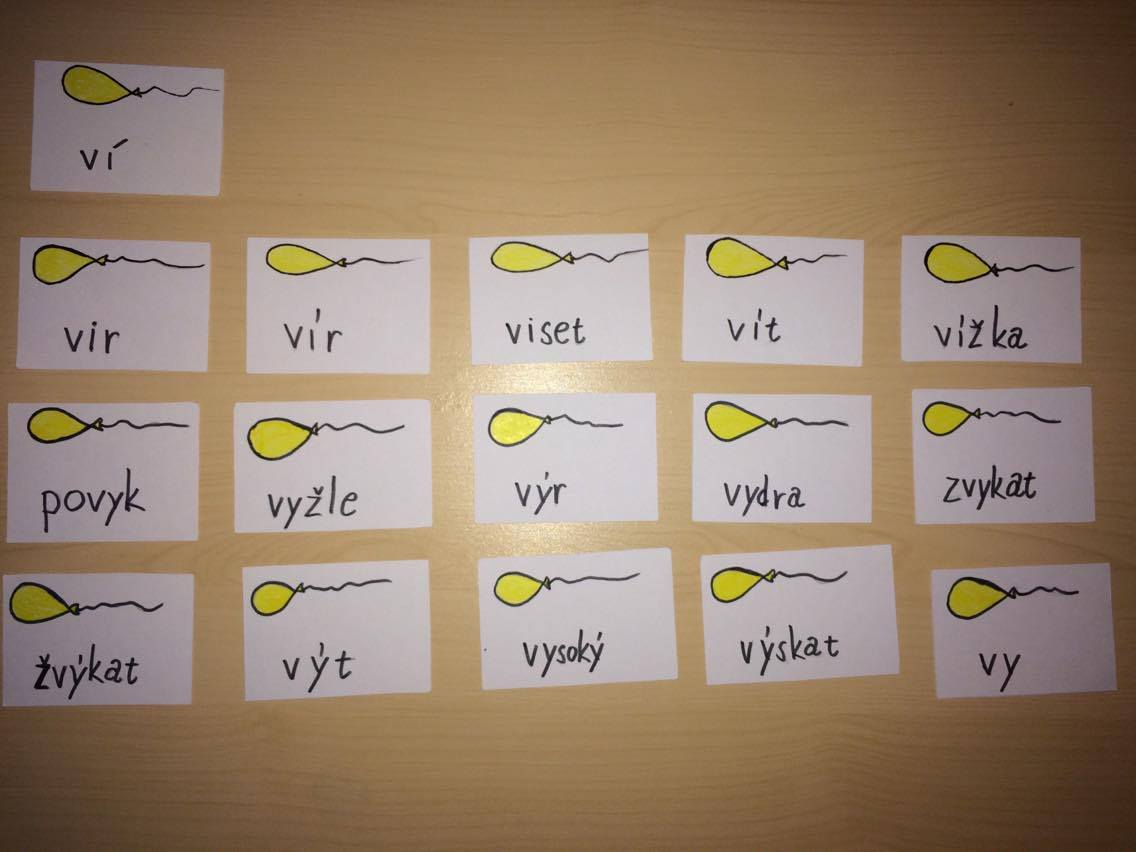 ví
vir
vír
viset
vít
vížka
povyk
vyžle
výr
vydra
zvykat
žvýkat
výt
vysoký
výskat
vy